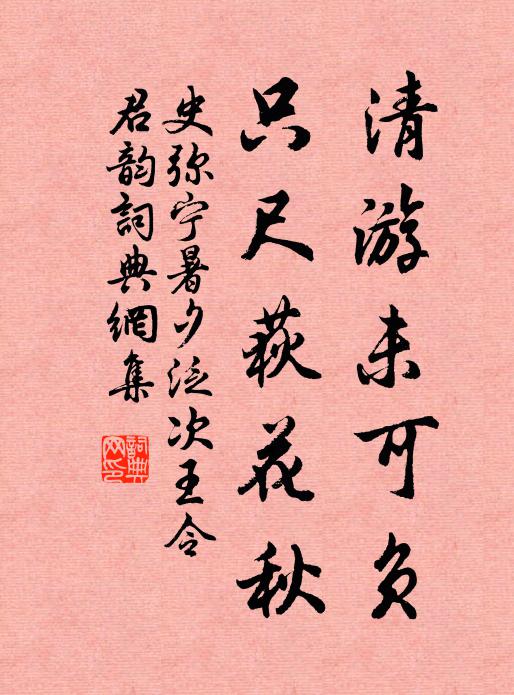 清游未可负
只尺荻花秋
史弥宁暑夕泛次王令
君韵詞典網集
詞典网印